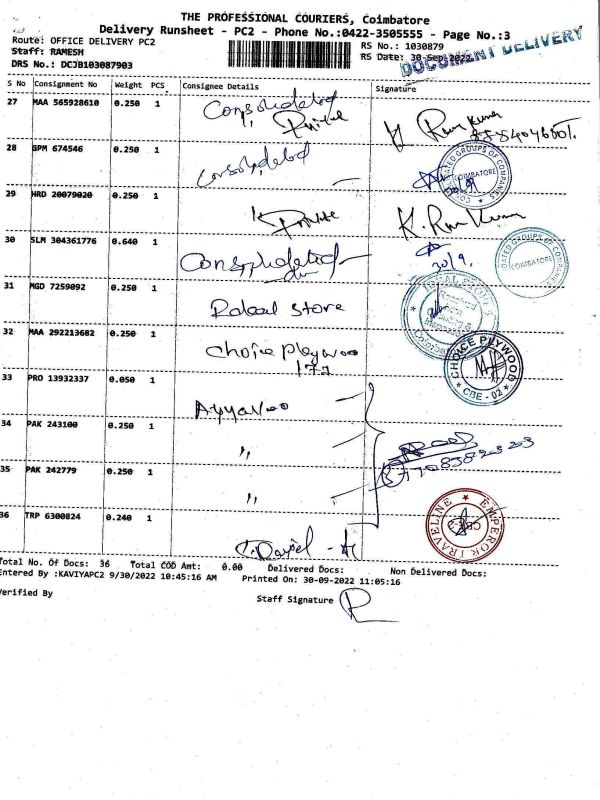 THE PROFESSIONAL COURIERS, Coimbatore
Delivery Runsheet - PC2 - Phone No.:0422-3505555 - Page No.:3
Route: OFFICE DELIVERY PC2
RS No.: 1030879
Staff: RAMESH
RS Date: 30-Sep-2022
DOCUMENT DELIVERY
DRS No.: DCJB103087903
S No Consignment No Weight PCS Consignee Details Signature
27 MAA 565928610 0.250 1 Consolidated
28 GPM 674546 0.250 1 Consolidated
29 HRD 20079020 0.250 1 Private K. Ram Kumar
30 SLM 304361776 0.640 1 Consolidated 30/9.
31 MGD 7259092 0.250 1 Store
32 MAA 292213682 0.250 1 Choice Plywood
177
CHOICE PLYWOOD
* CBE - 02 *
33 PRO 13932337 0.050 1 Ayyavoo
34 PAK 243100 0.250 1 ,,
35 PAK 242779 0.250 1 ,,
36 TRP 6300824 0.240 1 C. David
EMPEROR TRAVELINE
Total No. Of Docs: 36 Total COD Amt: 0.00 Delivered Docs: Non Delivered Docs:
Entered By :KAVIYAPC2 9/30/2022 10:45:16 AM Printed On: 30-09-2022 11:05:16
Verified By
Staff Signature